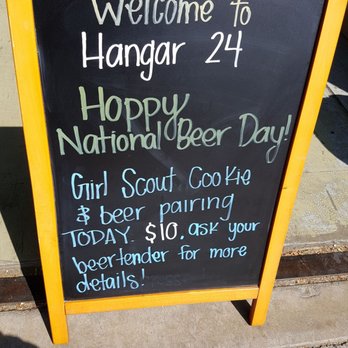 Welcome to
Hangar 24
Hoppy
National Beer Day!
Girl Scout Cookie
& beer pairing
TODAY. $10, ask your
beertender for more
details!